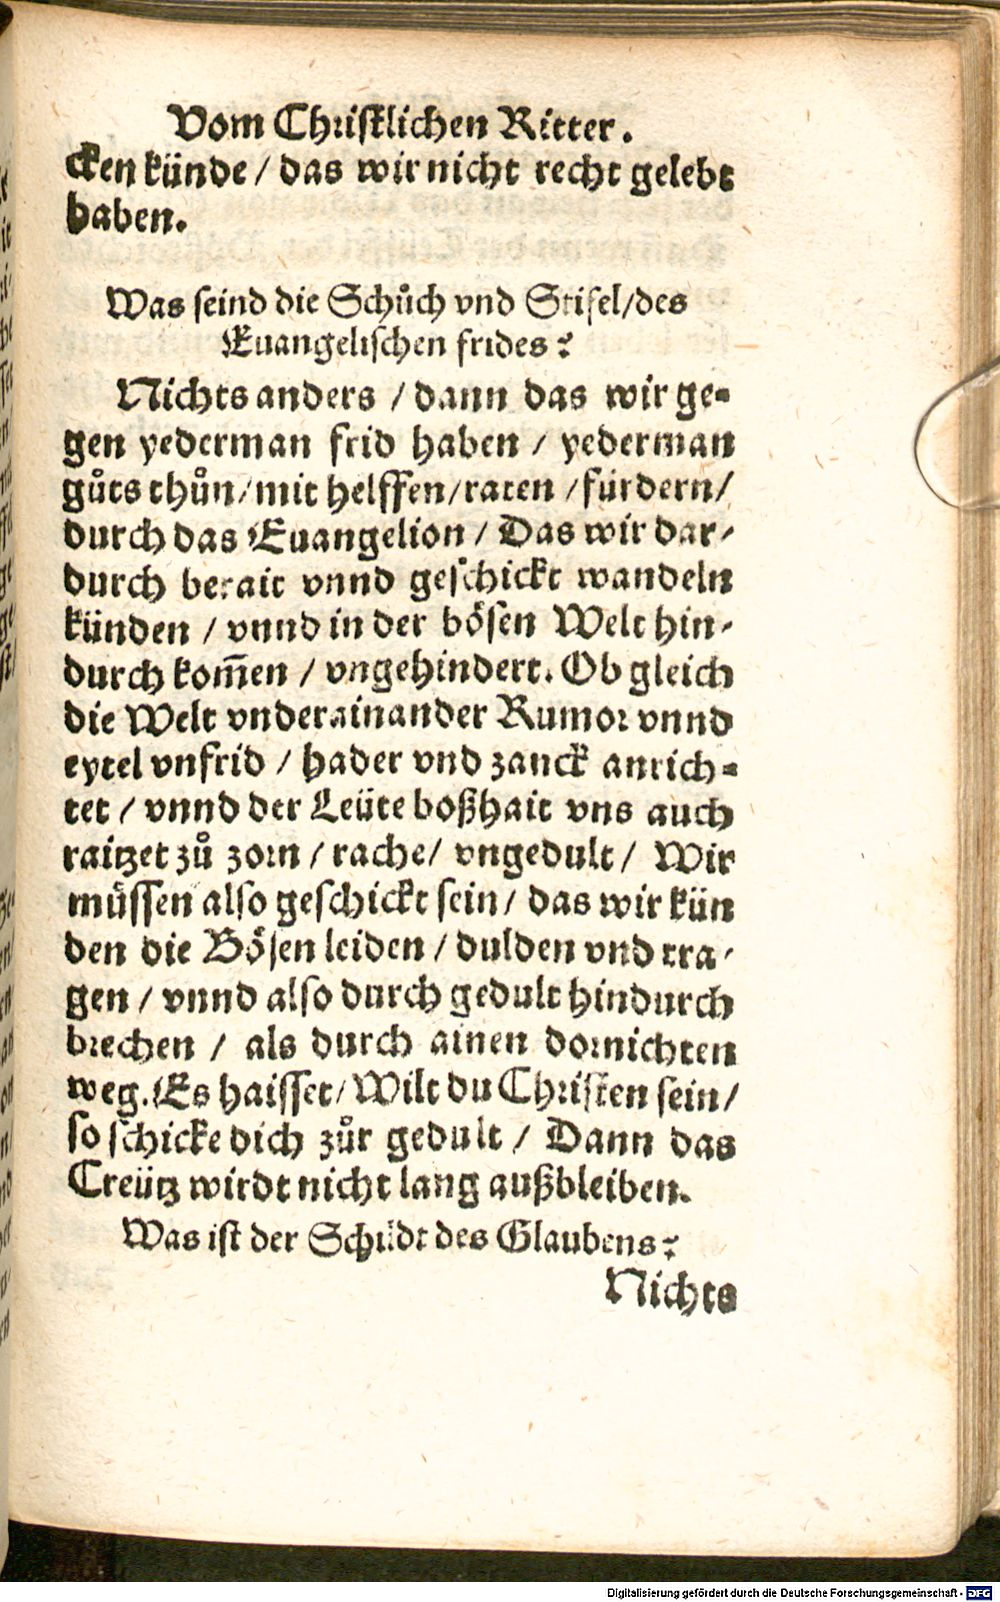 Vom Christlichen Ritter.
cken künde / das wir nicht recht gelebt
haben.
Was seind die Schůch vnd Stifel/des
Euangelischen frides?
Nichts anders / dann das wir ge-
gen yederman frid haben / yederman
gůts thůn/mit helffen/raten /fürdern/
durch das Euangelion / Das wir dar-
durch berait vnnd geschickt wandeln
künden / vnnd in der bösen Welt hin-
durch kom̃en / vngehindert. Ob gleich
die Welt vnderainander Rumor vnnd
eytel vnfrid / hader vnd zanck anrich-
tet / vnnd der Leüte boßhait vns auch
raitzet zů zorn / rache/ vngedult / Wir
müssen also geschickt sein / das wir kün
den die Bösen leiden / dulden vnd tra-
gen / vnnd also durch gedult hindurch
brechen / als durch ainen dornichten
weg. Es haisset/ Wilt du Christen sein/
so schicke dich zůr gedult / Dann das
Creütz wirdt nicht lang außbleiben.
Was ist der Schildt des Glaubens?
Nichts
Digitalisierung gefördert durch die Deutsche Forschungsgemeinschaft - DFG